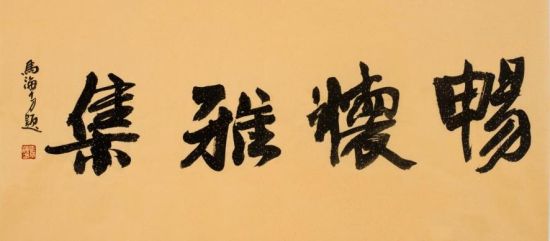 暢懷雅集
馬海方題